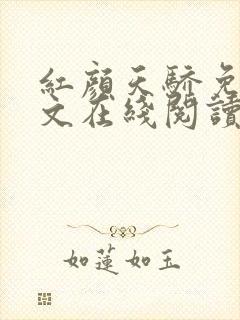 紅顏天驕免
文在綫閱讀
如蓮如玉